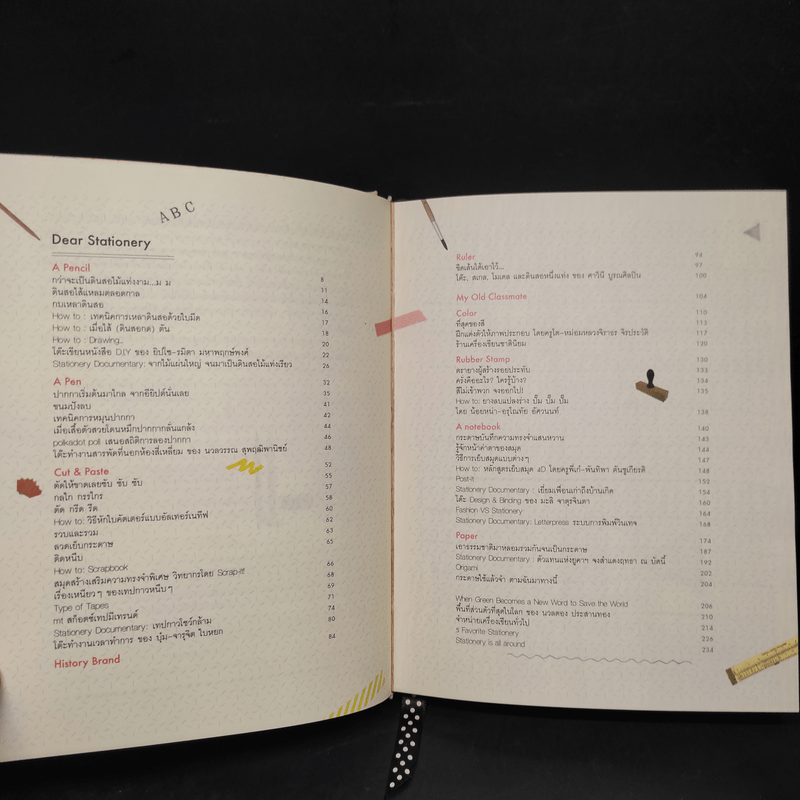 ABC
Dear Stationery
A Pencil
กว่าจะเป็นดินสอไม้แท่งงาม...ม ม 8
ดินสอไส้แหลมตลอดกาล 11
กบเหลาดินสอ 14
How to : เทคนิคการเหลาดินสอด้วยใบมีด 16
How to : เมื่อไส้ (ดินสอกด) ตัน 17
How to : Drawing.. 18
โต๊ะเขียนหนังสือ D.I.Y ของ ยิปโซ-รมิตา มหาพฤกษ์พงค์ 20
Stationery Documentary: จากไม้แผ่นใหญ่ จนมาเป็นดินสอไม้แท่งเรียว 22
26
A Pen 32
ปากกาเริ่มต้นมาไกล จากอียิปต์นั่นเลย 35
ขนมปังลบ 41
เทคนิคการหมุนปากกา 42
เมื่อเสื้อตัวสวยโดนหมึกปากกากลั่นแกล้ง 44
polkadot poll เสนอสถิติการลองปากกา 46
โต๊ะทำงานสารพัดที่นอกห้องสี่เหลี่ยม ของ นวลวรรณ สุพฤฒิพานิชย์ 48
Cut & Paste 52
ตัดให้ขาดเลยซับ ซับ ซับ 55
กลไก กรรไกร 57
ตัด กรีด รีด 58
How to: วิธีหักใบคัตเตอร์แบบอัลเทอร์เนทีฟ 60
รวบและรวม 62
ลวดเย็บกระดาษ 63
ติดหนึบ 65
How to: Scrapbook
สมุดสร้างเสริมความทรงจำพิเศษ วิทยากรโดย Scrap-it! 66
เรื่องเหนียวๆ ของเทปกาวหนึบๆ 68
Type of Tapes 69
mt สก็อตช์เทปมีเทรนด์ 71
Stationery Documentary: เทปกาวโชว์กล้าม 74
โต๊ะทำงานเวลาทำการ ของ บุ๋ม-จารุจิต ใบหยก 80
84
History Brand
Ruler 94
ขีดเส้นใต้เอาไว้... 97
โต๊ะ, สเกล, โมเดล และดินสอหนึ่งแท่ง ของ ศาวินี บูรณศิลปิน 100
My Old Classmate 104
Color 110
ที่สุดของสี 112
ฝึกแต่งตัวให้ภาพประกอบ โดยครูโต-หม่อมหลวงจิราธร จิรประวัติ 117
ร้านเครื่องเขียนชาตินิยม 120
Rubber Stamp 130
ตรายางผู้สร้างรอยประทับ 133
ครั่งคืออะไร? ใครรู้บ้าง? 134
สีไม่เข้าพวก จงออกไป! 135
How to: ยางลบแปลงร่าง ปั๊ม ปั๊ม ปั๊ม
โดย น้อยหน่า-อรุโณทัย อัศวนนท์ 138
A notebook 140
กระดาษบันทึกความทรงจำแสนหวาน 143
รู้จักหน้าค่าตาของสมุด 144
วิธีการเย็บสมุดแบบต่างๆ 147
How to: หลักสูตรเย็บสมุด 4D โดยครูพี่เก๋-พันทิพา ตันชูเกียรติ 148
Post-it 152
Stationery Documentary : เยี่ยมเพื่อนเก่าถึงบ้านเกิด 154
โต๊ะ Design & Binding ของ มะลิ จาตุรจินดา 160
Fashion VS Stationery 164
Stationery Documentary: Letterpress ระบบการพิมพ์วินเทจ 168
Paper 174
เอาธรรมชาติมาหลอมรวมกันจนเป็นกระดาษ 187
Stationery Documentary : ตัวแทนแห่งยูคาฯ จงสำแดงฤทธา ณ บัดนี้ 192
Origami 202
กระดาษใช้แล้วจำ ตามฉันมาทางนี้ 204
When Green Becomes a New Word to Save the World 206
พื้นที่ส่วนตัวที่สุดในโลก ของ นวลตอง ประสานทอง 210
จำหน่ายเครื่องเขียนทั่วไป 214
5 Favorite Stationery 226
Stationery is all around 234